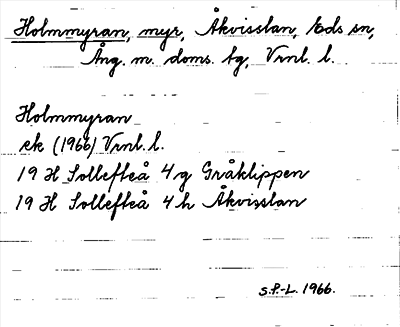 Holmmyran, myr, Åkvisslan, Eds sn,
Ång. m. doms. tg, Vrnl. l.
Holmmyran
ek (1966) Vrnl. l.
19 H Sollefteå 4 g Gråklippen
19 H Sollefteå 4 h Åkvisslan
S.P.-L. 1966.